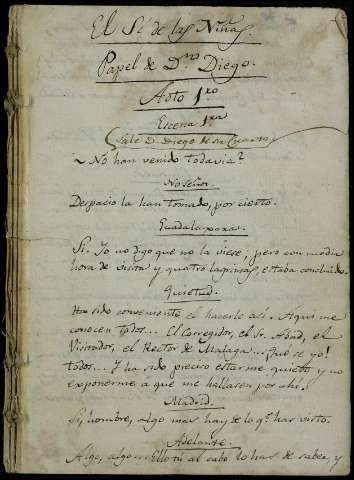 El Sí de las Niñas.
Papel de Dn. Diego.
Acto 1.ro
Escena 1.ra
(Sale D. Diego de su Cuarto.)
~ No han venido todavia?
No señor.
Despacio la han tomado, por cierto.
Guadalaxara.
Sí. Yo no digo que no la viese; pero con media
hora de visita y quatro lagrimas, estaba concluido.
Quietud.
Ha sido conveniente el hacerlo así. Aquí me
conocen todos... El Corregidor, el Sr. Abad, el
Visitador, el Rector de Malaga... Qué se yo!
todos... Y ha sido preciso estarme quieto y no
exponerme á que me hallasen por ahí.
Madrid.
Sí, hombre, algo mas hay de lo q.e has visto.
Adelante.
Algo, algo... Ello tú al cabo lo has de saber, y